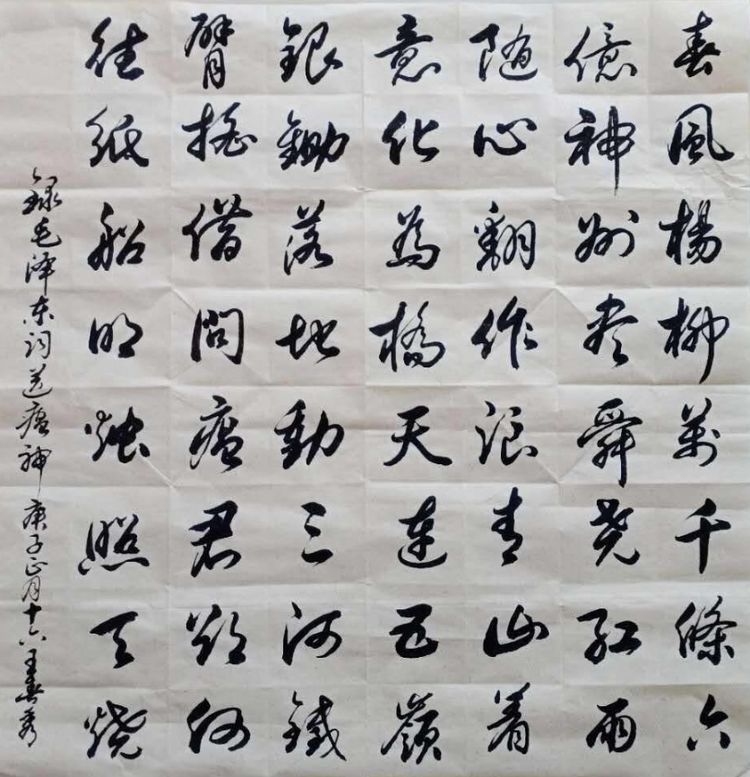 春風楊柳萬千條六
億神州尽舜尧紅雨
随心翻作浪青山着
意化為橋天連五嶺
銀鋤落地動三河鐵
臂搖借問瘟君欲何
往紙船明烛照天燒
録毛泽東詞送瘟神 庚子正月十六王秀